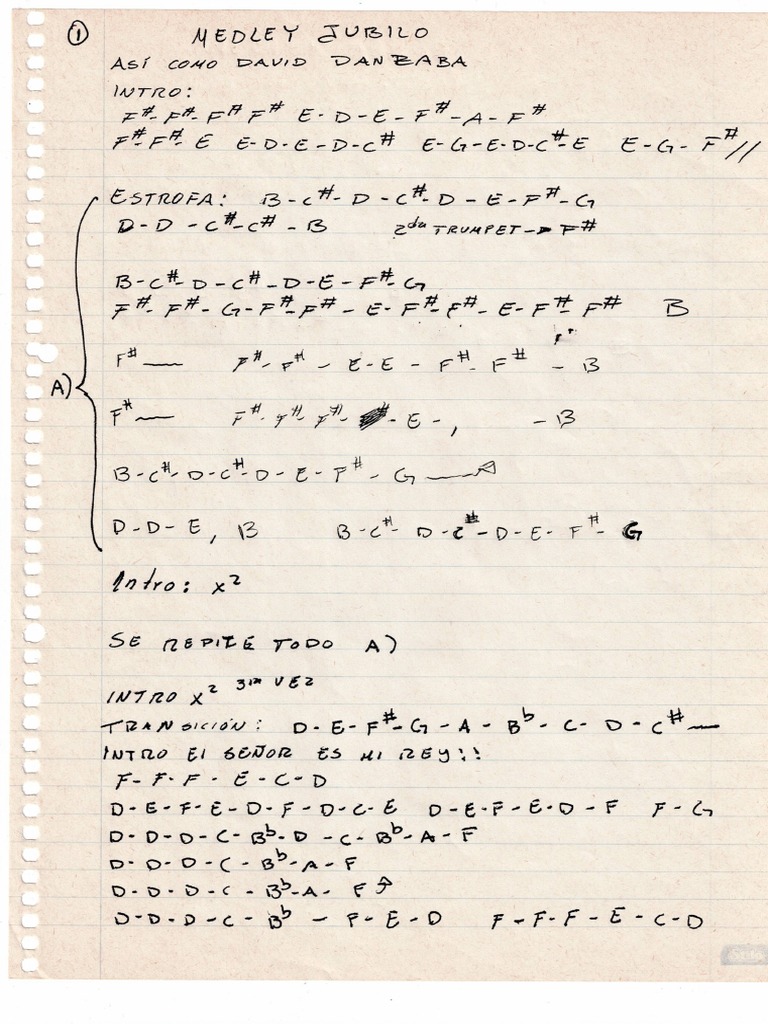 ① MEDLEY JUBILO
ASÍ COMO DAVID DANZABA
INTRO:
F#- F#- F# F# E-D-E-F#-A-F#
F#-F#-E E-D-E-D-C# E-G-E-D-C#-E E-G-F#//
ESTROFA: B-C#-D-C#-D-E-F#-G
D-D-C#-C#-B 2da TRUMPET-D F#
B-C#-D-C#-D-E-F#-G
F#-F#-G-F#-F#-E-F#-F#-E-F#-F# B
F#— F#-F#-E-E-F#-F# - B
A)
F#— F#-F#-F#- -E-, -B
B-C#-D-C#-D-E-F#-G
D-D-E, B B-C#-D-C#-D-E-F#-G
Intro: x2
SE REPITE TODO A)
INTRO x2 3ra VEZ
TRANSICIÓN: D-E-F#-G-A-Bb-C-D-C#—
INTRO El SEÑOR ES MI REY!!
F-F-F-E-C-D
D-E-F-E-D-F-D-C-E D-E-F-E-D-F F-G
D-D-D-C-Bb-D-C-Bb-A-F
D-D-D-C-Bb-A-F
D-D-D-C-Bb-A-F
D-D-D-C-Bb - F-E-D F-F-F-E-C-D